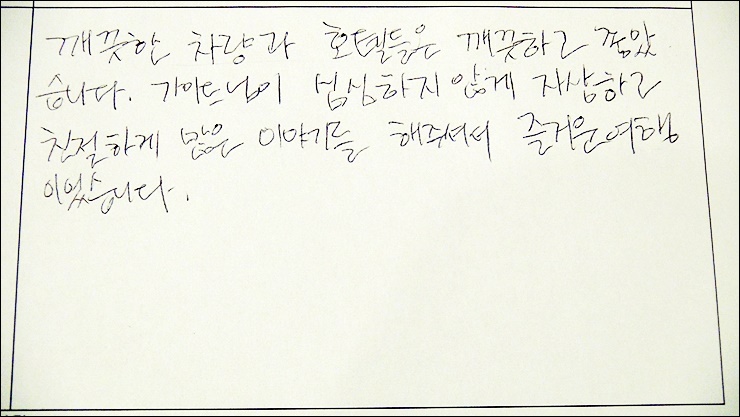 깨끗한 차량과 호텔들은 깨끗하고 좋았
습니다. 가이드님이 섬심하지 않게 자상하고
친절하게 많은 이야기를 해주셔서 즐거운여행
이었습니다.